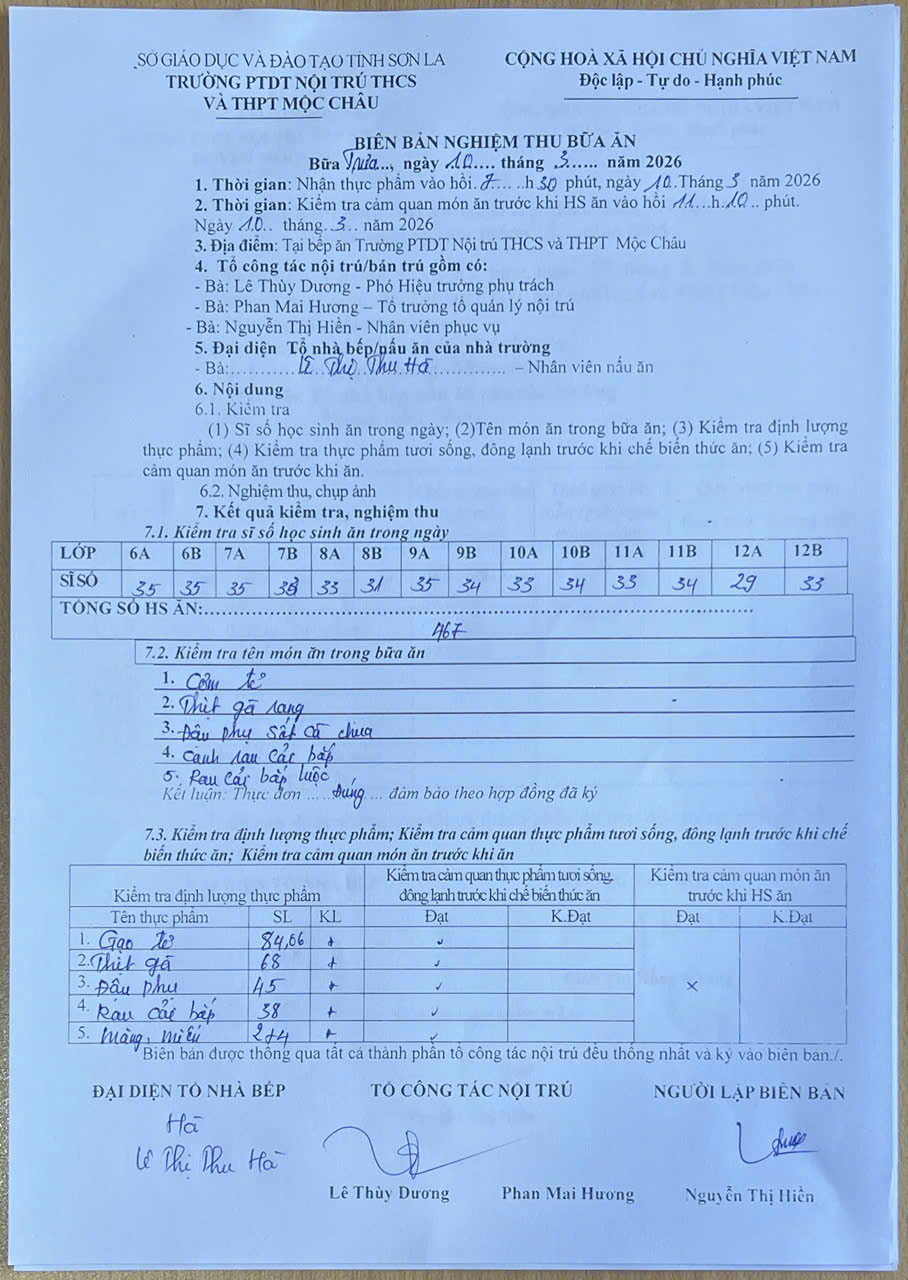 SỞ GIÁO DỤC VÀ ĐÀO TẠO TỈNH SƠN LA
TRƯỜNG PTDT NỘI TRÚ THCS
VÀ THPT MỘC CHÂU
CỘNG HOÀ XÃ HỘI CHỦ NGHĨA VIỆT NAM
Độc lập - Tự do - Hạnh phúc
BIÊN BẢN NGHIỆM THU BỮA ĂN
Bữa Trưa..., ngày 10.... tháng .3...... năm 2026
1. Thời gian: Nhận thực phẩm vào hồi. 7.... ..h 30 phút, ngày 10..Tháng 3 năm 2026
2. Thời gian: Kiểm tra cảm quan món ăn trước khi HS ăn vào hồi 11...h.10.. phút.
Ngày 10.. tháng..3.. năm 2026
3. Địa điểm: Tại bếp ăn Trường PTDT Nội trú THCS và THPT Mộc Châu
4. Tổ công tác nội trú/bán trú gồm có:
- Bà: Lê Thùy Dương - Phó Hiệu trưởng phụ trách
- Bà: Phan Mai Hương – Tổ trưởng tổ quản lý nội trú
- Bà: Nguyễn Thị Hiền - Nhân viên phục vụ
5. Đại diện Tổ nhà bếp/nấu ăn của nhà trường
- Bà:............Lê Thị Thu Hà............... – Nhân viên nấu ăn
6. Nội dung
6.1. Kiểm tra
(1) Sĩ số học sinh ăn trong ngày; (2)Tên món ăn trong bữa ăn; (3) Kiểm tra định lượng
thực phẩm; (4) Kiểm tra thực phẩm tươi sống, đông lạnh trước khi chế biến thức ăn; (5) Kiểm tra
cảm quan món ăn trước khi ăn.
6.2. Nghiệm thu, chụp ảnh
7. Kết quả kiểm tra, nghiệm thu
7.1. Kiểm tra sĩ số học sinh ăn trong ngày
LỚP 6A 6B 7A 7B 8A 8B 9A 9B 10A 10B 11A 11B 12A 12B
SĨ SỐ 35 35 35 33 33 31 35 34 33 34 33 34 29 33
TỔNG SỐ HS ĂN:..........................................................................
467
7.2. Kiểm tra tên món ăn trong bữa ăn
1. Cơm tẻ
2. Thịt gà rang
3. Đậu phụ sốt cà chua
4. Canh rau cải bắp
5. Rau cải bắp luộc
Kết luận: Thực đơn ......Đúng.... đảm bảo theo hợp đồng đã ký
7.3. Kiểm tra định lượng thực phẩm; Kiểm tra cảm quan thực phẩm tươi sống, đông lạnh trước khi chế
biến thức ăn; Kiểm tra cảm quan món ăn trước khi ăn
Kiểm tra định lượng thực phẩm
Kiểm tra cảm quan thực phẩm tươi sống,
đông lạnh trước khi chế biến thức ăn
Kiểm tra cảm quan món ăn
trước khi HS ăn
Tên thực phẩm SL KL Đạt K.Đạt Đạt K.Đạt
1. Gạo tẻ 84,06 + ✓
2. Thịt gà 68 + ✓
3. Đậu phụ 45 + ✓ ×
4. Rau cải bắp 38 + ✓
5. Măng, miến 2+4 + ✓
Biên bản được thông qua tất cả thành phần tổ công tác nội trú đều thống nhất và ký vào biên bản./.
ĐẠI DIỆN TỔ NHÀ BẾP TỔ CÔNG TÁC NỘI TRÚ NGƯỜI LẬP BIÊN BẢN
Hà
Lê Thị Thu Hà
Lê Thùy Dương Phan Mai Hương Nguyễn Thị Hiền